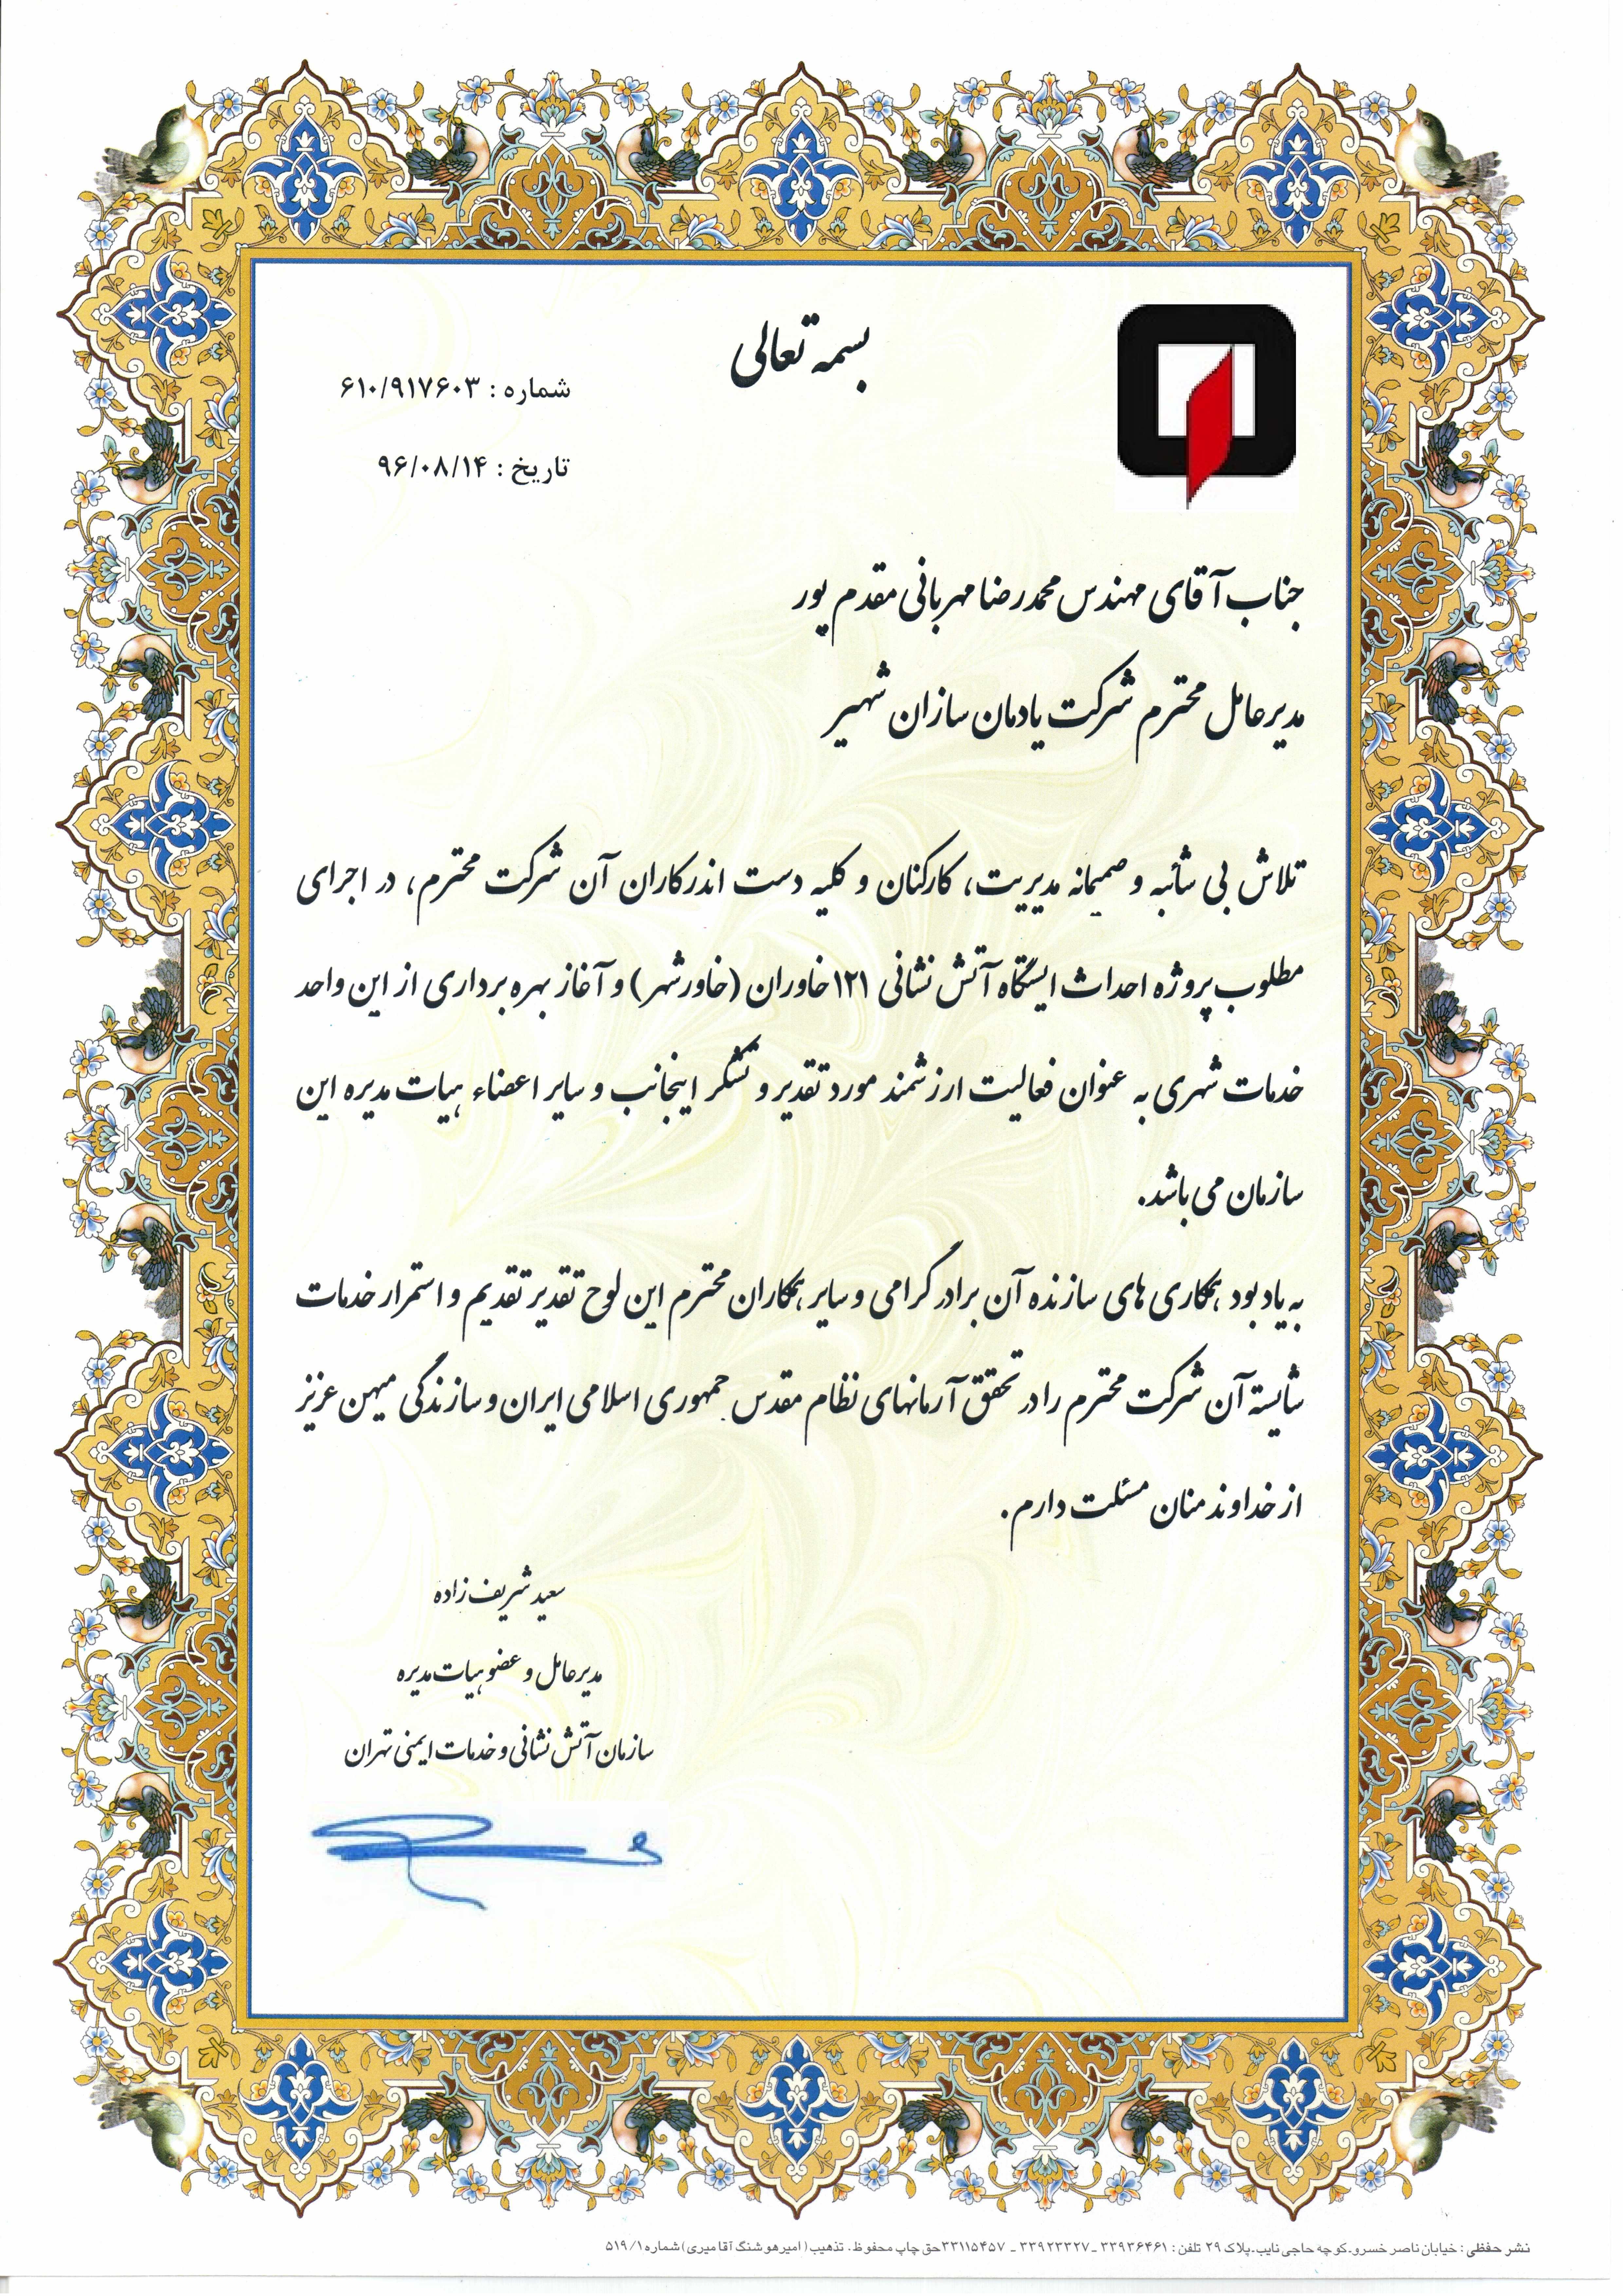 بسمه تعالی
شماره : ۶۱۰/۹۱۷۶۰۳
تاریخ : ۹۶/۰۸/۱۴
جناب آقای مهندس محمدرضا مهربانی مقدم پور
مدیرعامل محترم شرکت یادمان سازان شهیر
تلاش بی شائبه و صمیمانه مدیریت، کارکنان و کلیه دست اندرکاران آن شرکت محترم، در اجرای
مطلوب پروژه احداث ایستگاه آتش نشانی ۱۲۱ خاوران (خاورشهر) و آغاز بهره برداری از این واحد
خدمات شهری به عنوان فعالیت ارزشمند مورد تقدیر و تشکر اینجانب و سایر اعضاء هیات مدیره این
سازمان می باشد.
به یادبود همکاری های سازنده آن برادر گرامی و سایر همکاران محترم این لوح تقدیر تقدیم و استمرار خدمات
شایسته آن شرکت محترم را در تحقق آرمانهای نظام مقدس جمهوری اسلامی ایران و سازندگی میهن عزیز
از خداوند منان مسئلت دارم.
سعید شریف زاده
مدیرعامل و عضو هیات مدیره
سازمان آتش نشانی و خدمات ایمنی تهران
نشر حفظی : خیابان ناصر خسرو-کوچه حاجی نایب-پلاک ۲۹ تلفن : ۳۳۹۳۶۴۶۱ - ۳۳۹۲۳۳۲۷ - ۳۳۱۱۵۴۵۷ حق چاپ محفوظ . تذهیب ( امیرهوشنگ آقامیری ) شماره ۵۱۹/۱